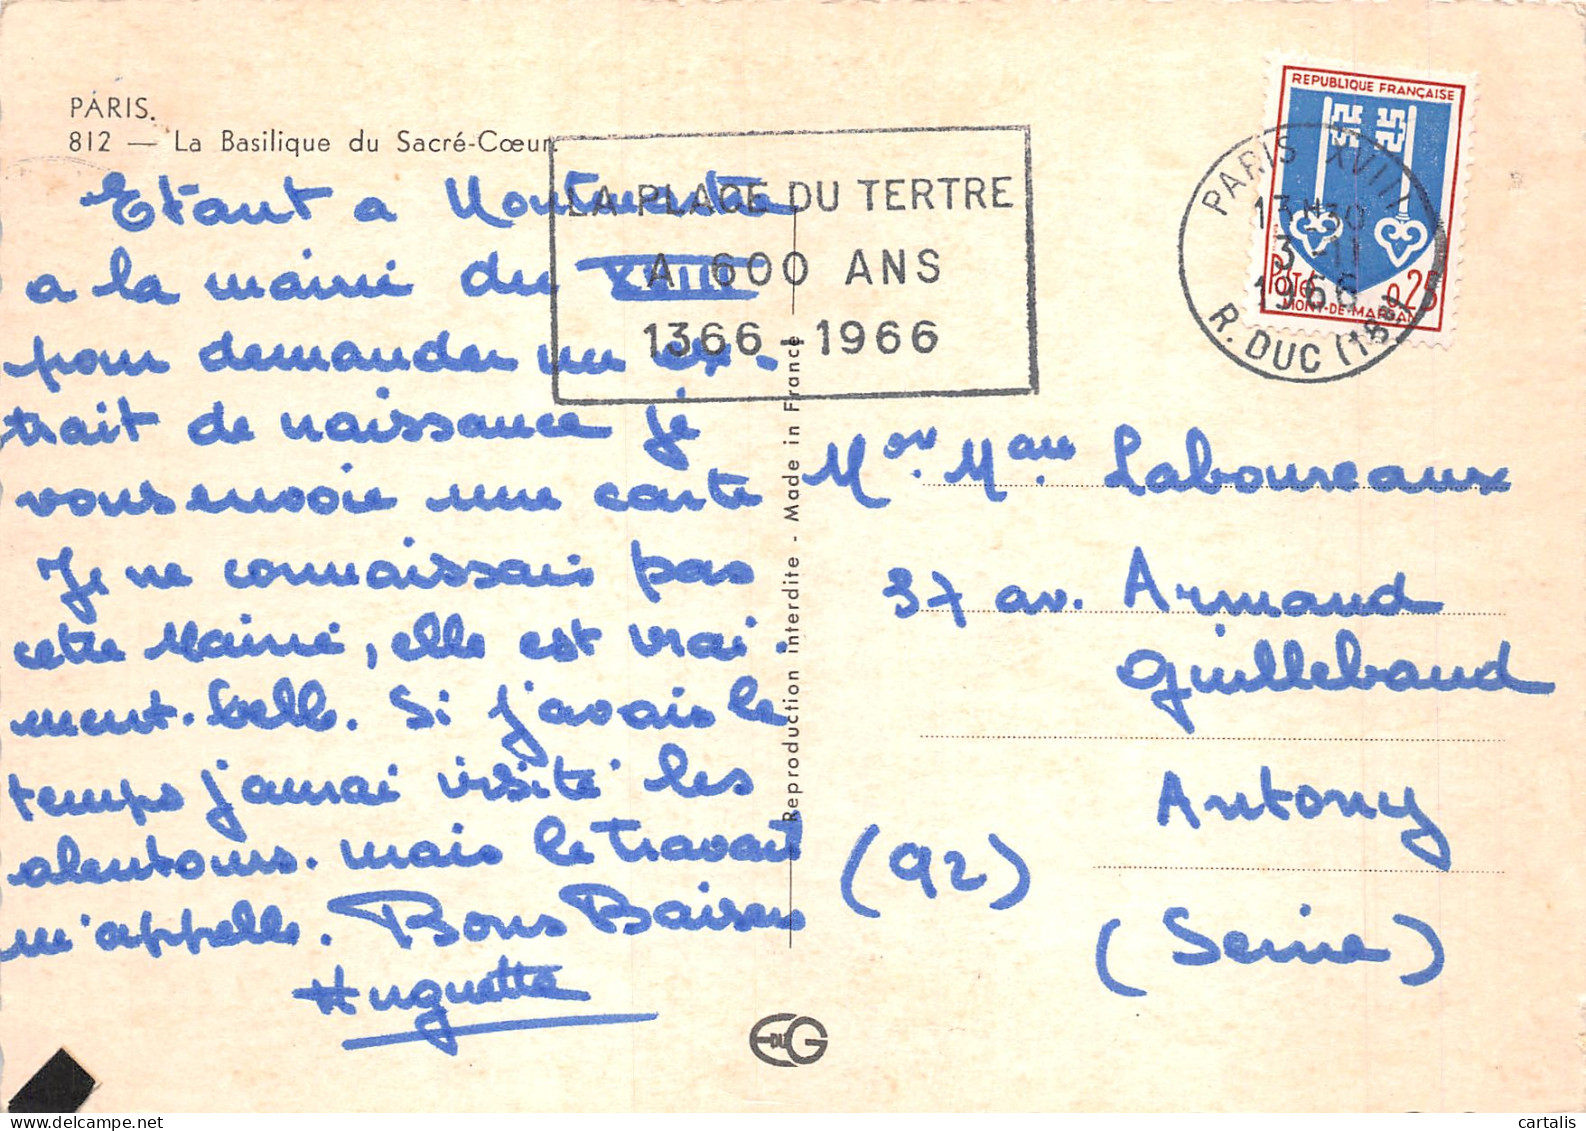 PARIS.
812 — La Basilique du Sacré-Cœur.
Etant a Montmartre
a la mairie du XVIIIe
pour demander un ex-
trait de naissance je
vous envoie une carte
Je ne connaissais pas
cette Mairie, elle est vrai-
ment. belle. Si j'avais le
temps j'aurai visité les
alentours. mais le travail
m'appelle. Bons Baisers
Huguette
LA PLACE DU TERTRE
A 600 ANS
1366 - 1966
Reproduction interdite - Made in France
REPUBLIQUE FRANÇAISE
POSTES 0,25
MONT-DE-MARSAN
PARIS XVIII
13H30
3-11
1966
R. DUC (18e)
Mr ou Mme Laboureaux
37 av. Armand
Guillebaud
Antony
(92)
(Seine)
E DU G
cartalis